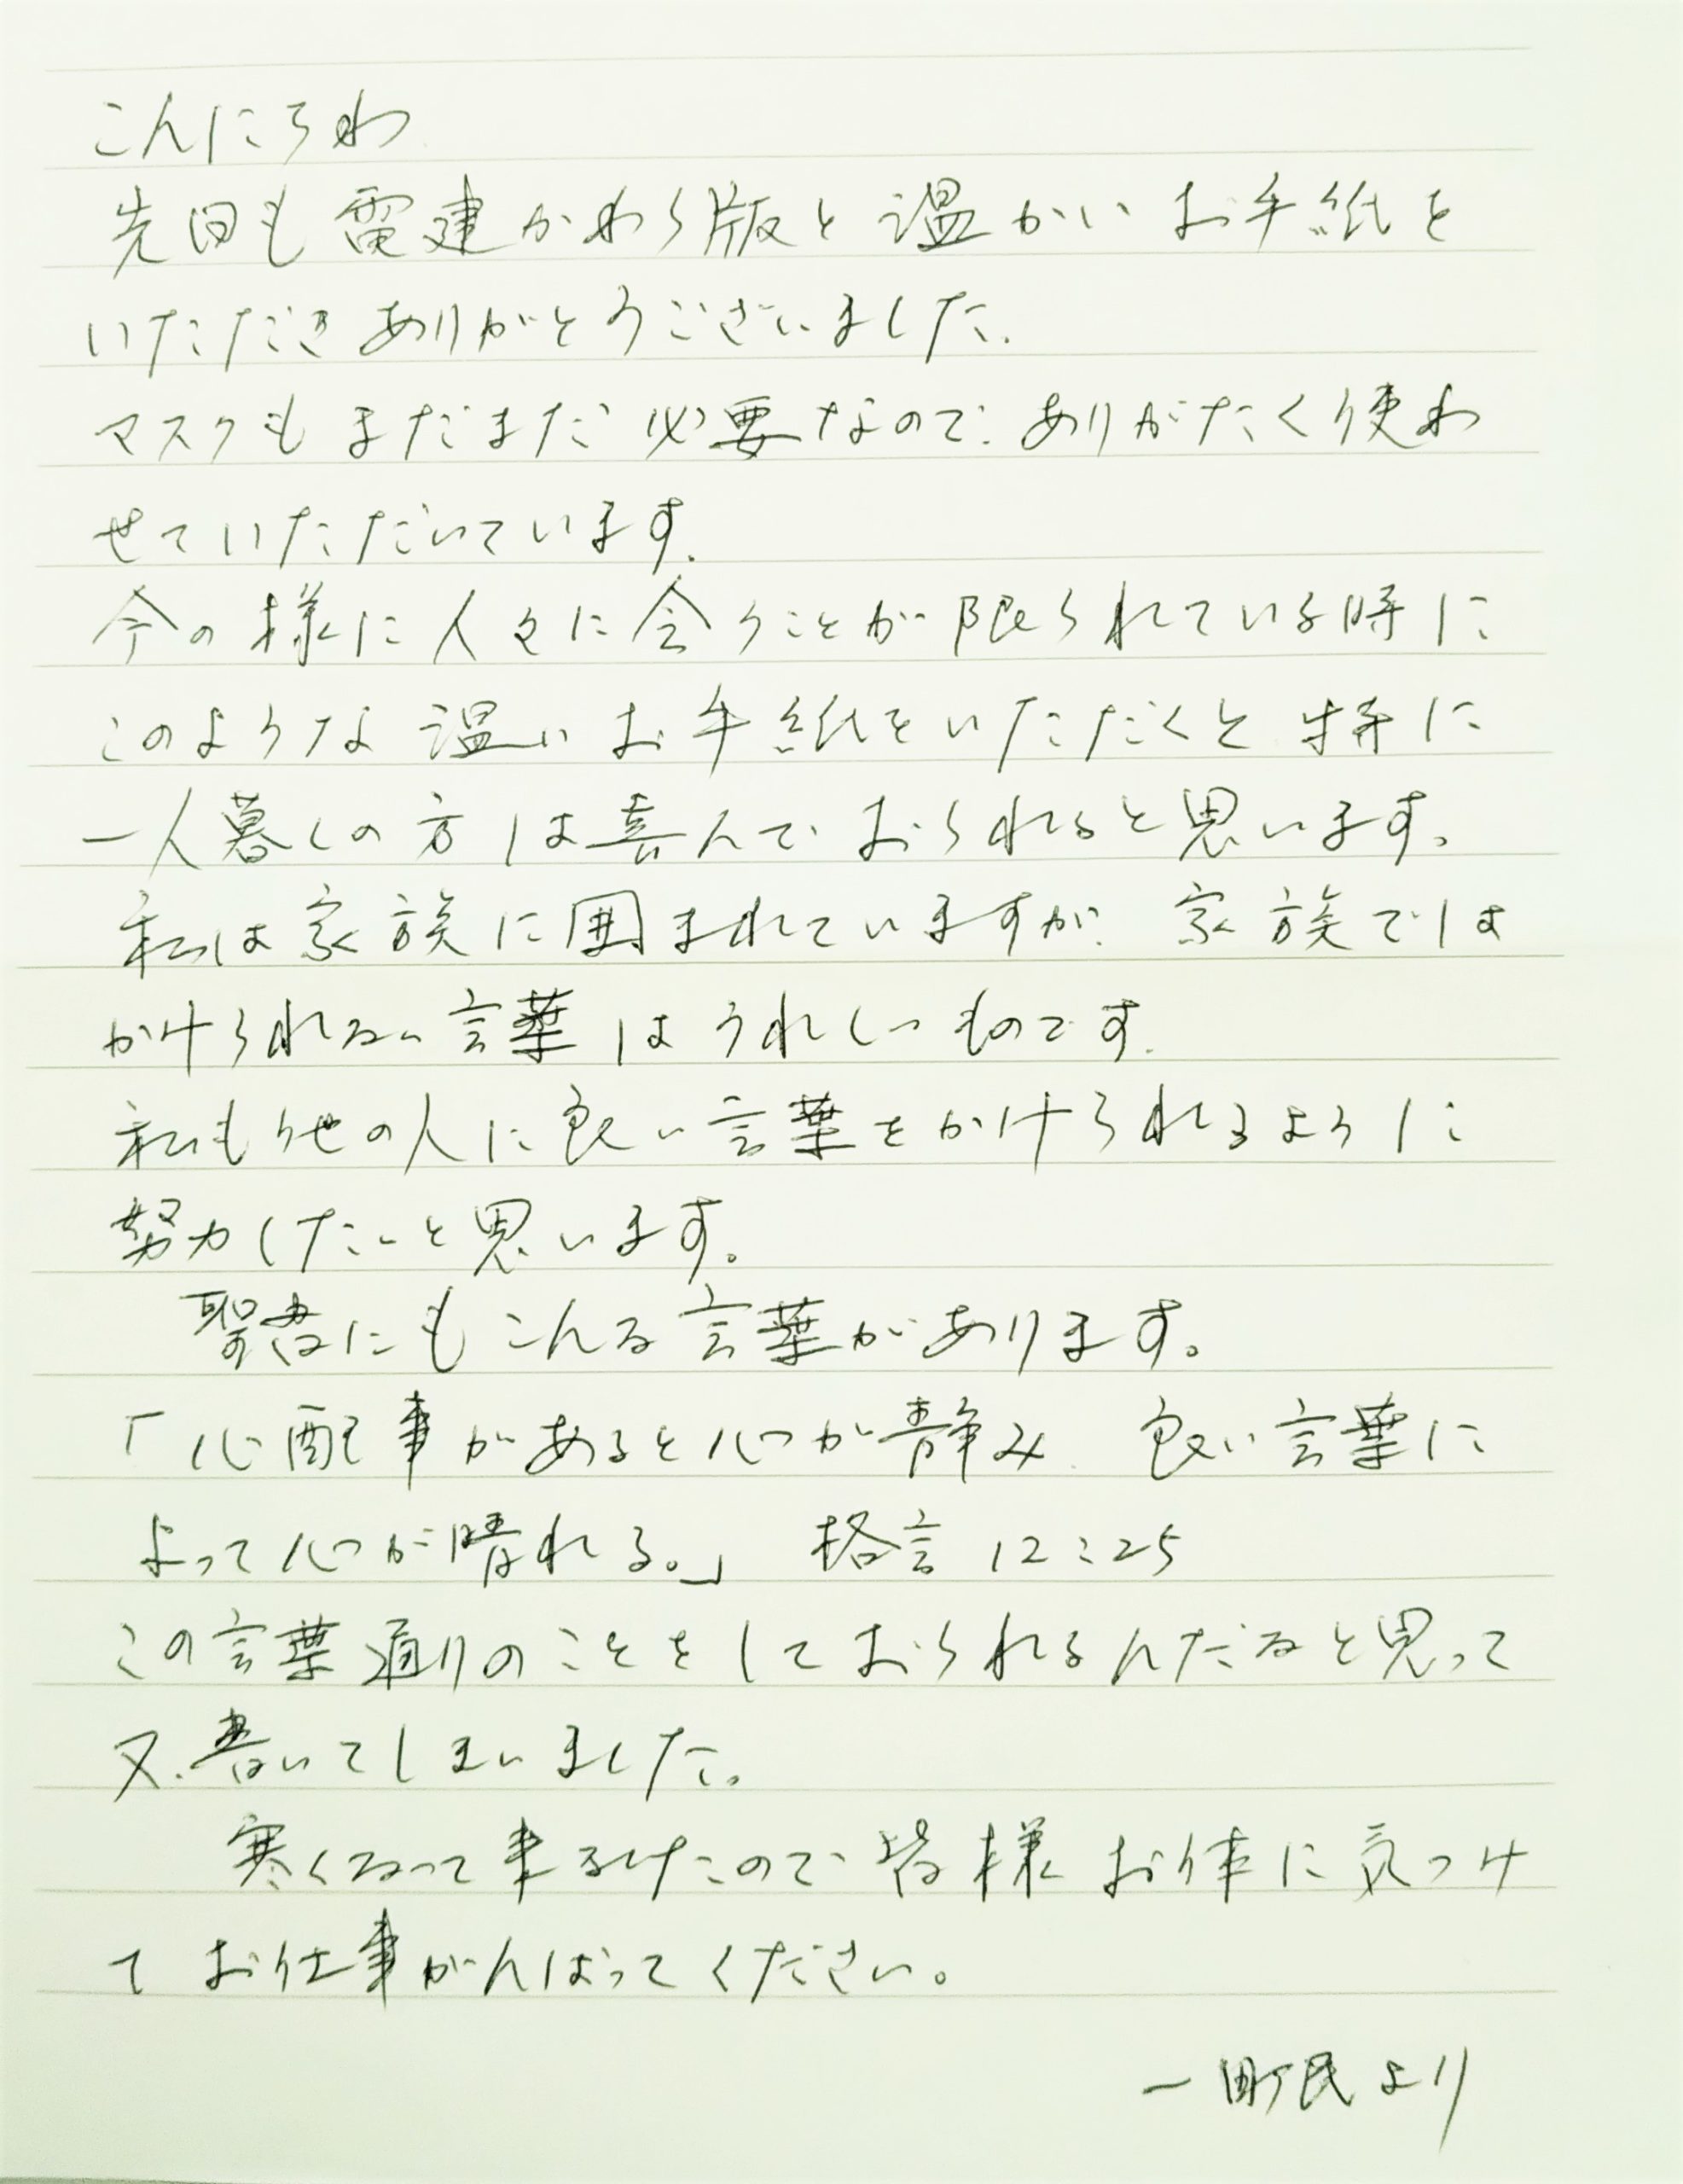 こんにちわ
先日も電建かわら版と温かいお手紙を
いただきありがとうございました.
マスクもまだまだ必要なので、ありがたく使わ
せていただいています.
今の様に人々に会うことが限られている時に
このような温いお手紙をいただくと特に
一人暮しの方は喜んでおられると思います。
私は家族に囲まれていますが、家族では
かけられない言葉はうれしいものです.
私も他の人に良い言葉をかけられるように
努力したいと思います。
聖書にもこんな言葉があります。
「心配事があると心が静み、良い言葉に
よって心が晴れる。」 格言 12:25
この言葉通りのことをしておられるんだなと思って
又、書いてしまいました。
寒くなって来ましたので皆様お体に気つけ
てお仕事がんばってください。
一町民より